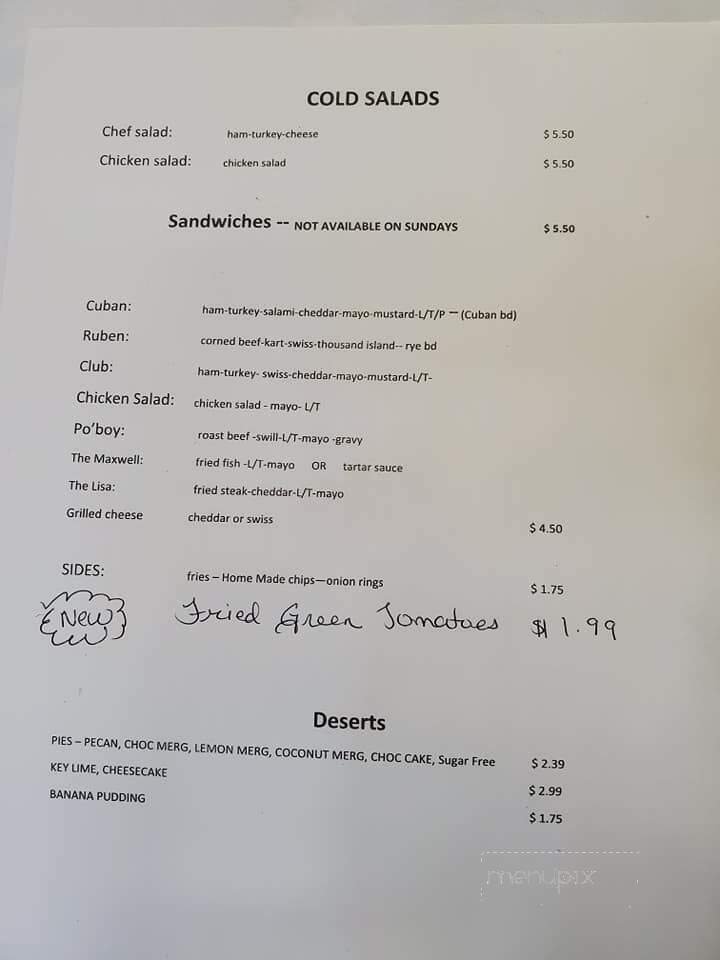 COLD SALADS
Chef salad: ham-turkey-cheese $ 5.50
Chicken salad: chicken salad $ 5.50
Sandwiches -- NOT AVAILABLE ON SUNDAYS $ 5.50
Cuban: ham-turkey-salami-cheddar-mayo-mustard-L/T/P — (Cuban bd)
Ruben: corned beef-kart-swiss-thousand island-- rye bd
Club: ham-turkey- swiss-cheddar-mayo-mustard-L/T-
Chicken Salad: chicken salad - mayo- L/T
Po'boy: roast beef -swill-L/T-mayo -gravy
The Maxwell: fried fish -L/T-mayo OR tartar sauce
The Lisa: fried steak-cheddar-L/T-mayo
Grilled cheese cheddar or swiss $ 4.50
SIDES: fries – Home Made chips—onion rings $ 1.75
New Fried Green Tomatoes $ 1.99
Deserts
PIES – PECAN, CHOC MERG, LEMON MERG, COCONUT MERG, CHOC CAKE, Sugar Free $ 2.39
KEY LIME, CHEESECAKE $ 2.99
BANANA PUDDING $ 1.75
menupix